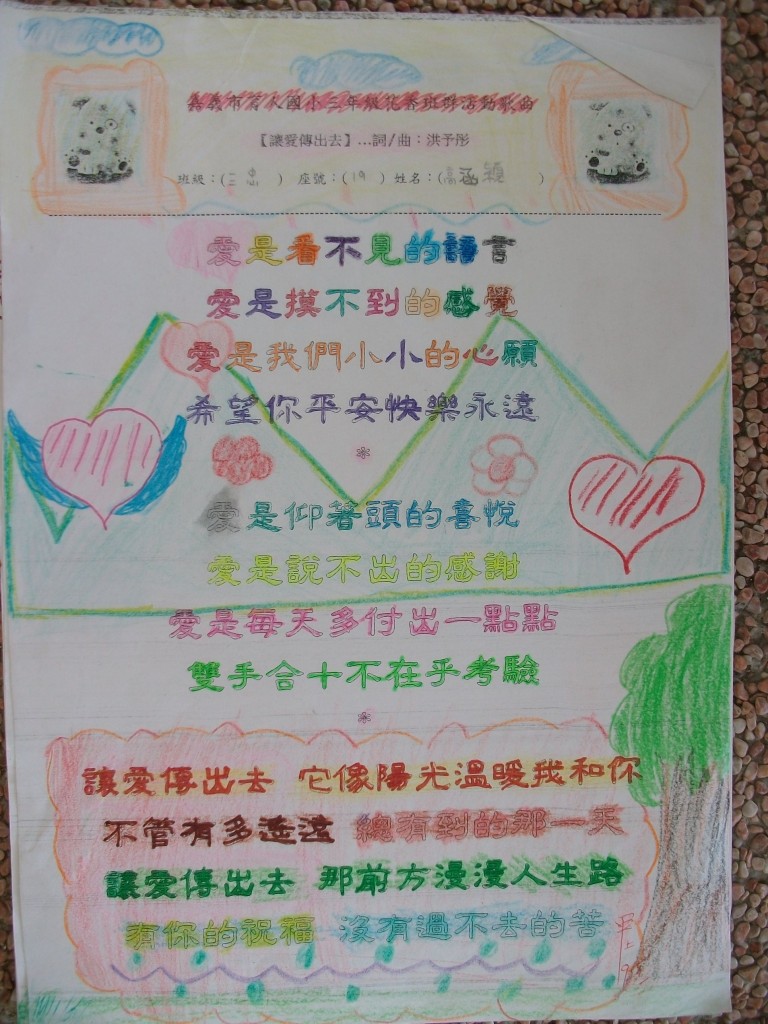 嘉義市育人國小三年級花香班群活動歌曲
【讓愛傳出去】…詞/曲：洪予彤
班級：(三忠 ) 座號：(19 ) 姓名：(高涵穎 )
愛是看不見的語言
愛是摸不到的感覺
愛是我們小小的心願
希望你平安快樂永遠
*
愛是仰著頭的喜悅
愛是說不出的感謝
愛是每天多付出一點點
雙手合十不在乎考驗
*
讓愛傳出去 它像陽光溫暖我和你
不管有多遙遠 總有到的那一天
讓愛傳出去 那前方漫漫人生路
有你的祝福 沒有過不去的苦
甲上